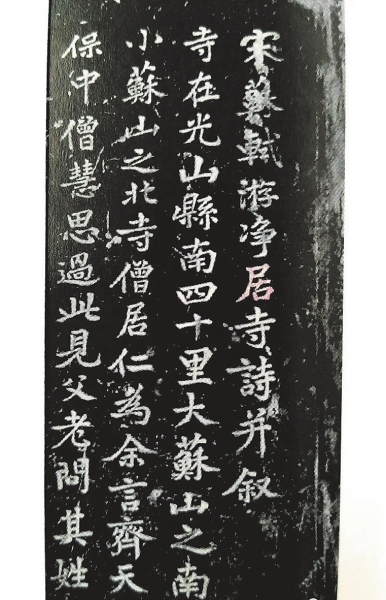 宋蘇軾游净居寺詩并叙
寺在光山縣南四十里大蘇山之南
小蘇山之北寺僧居仁為余言齊天
保中僧慧思過此見父老問其姓